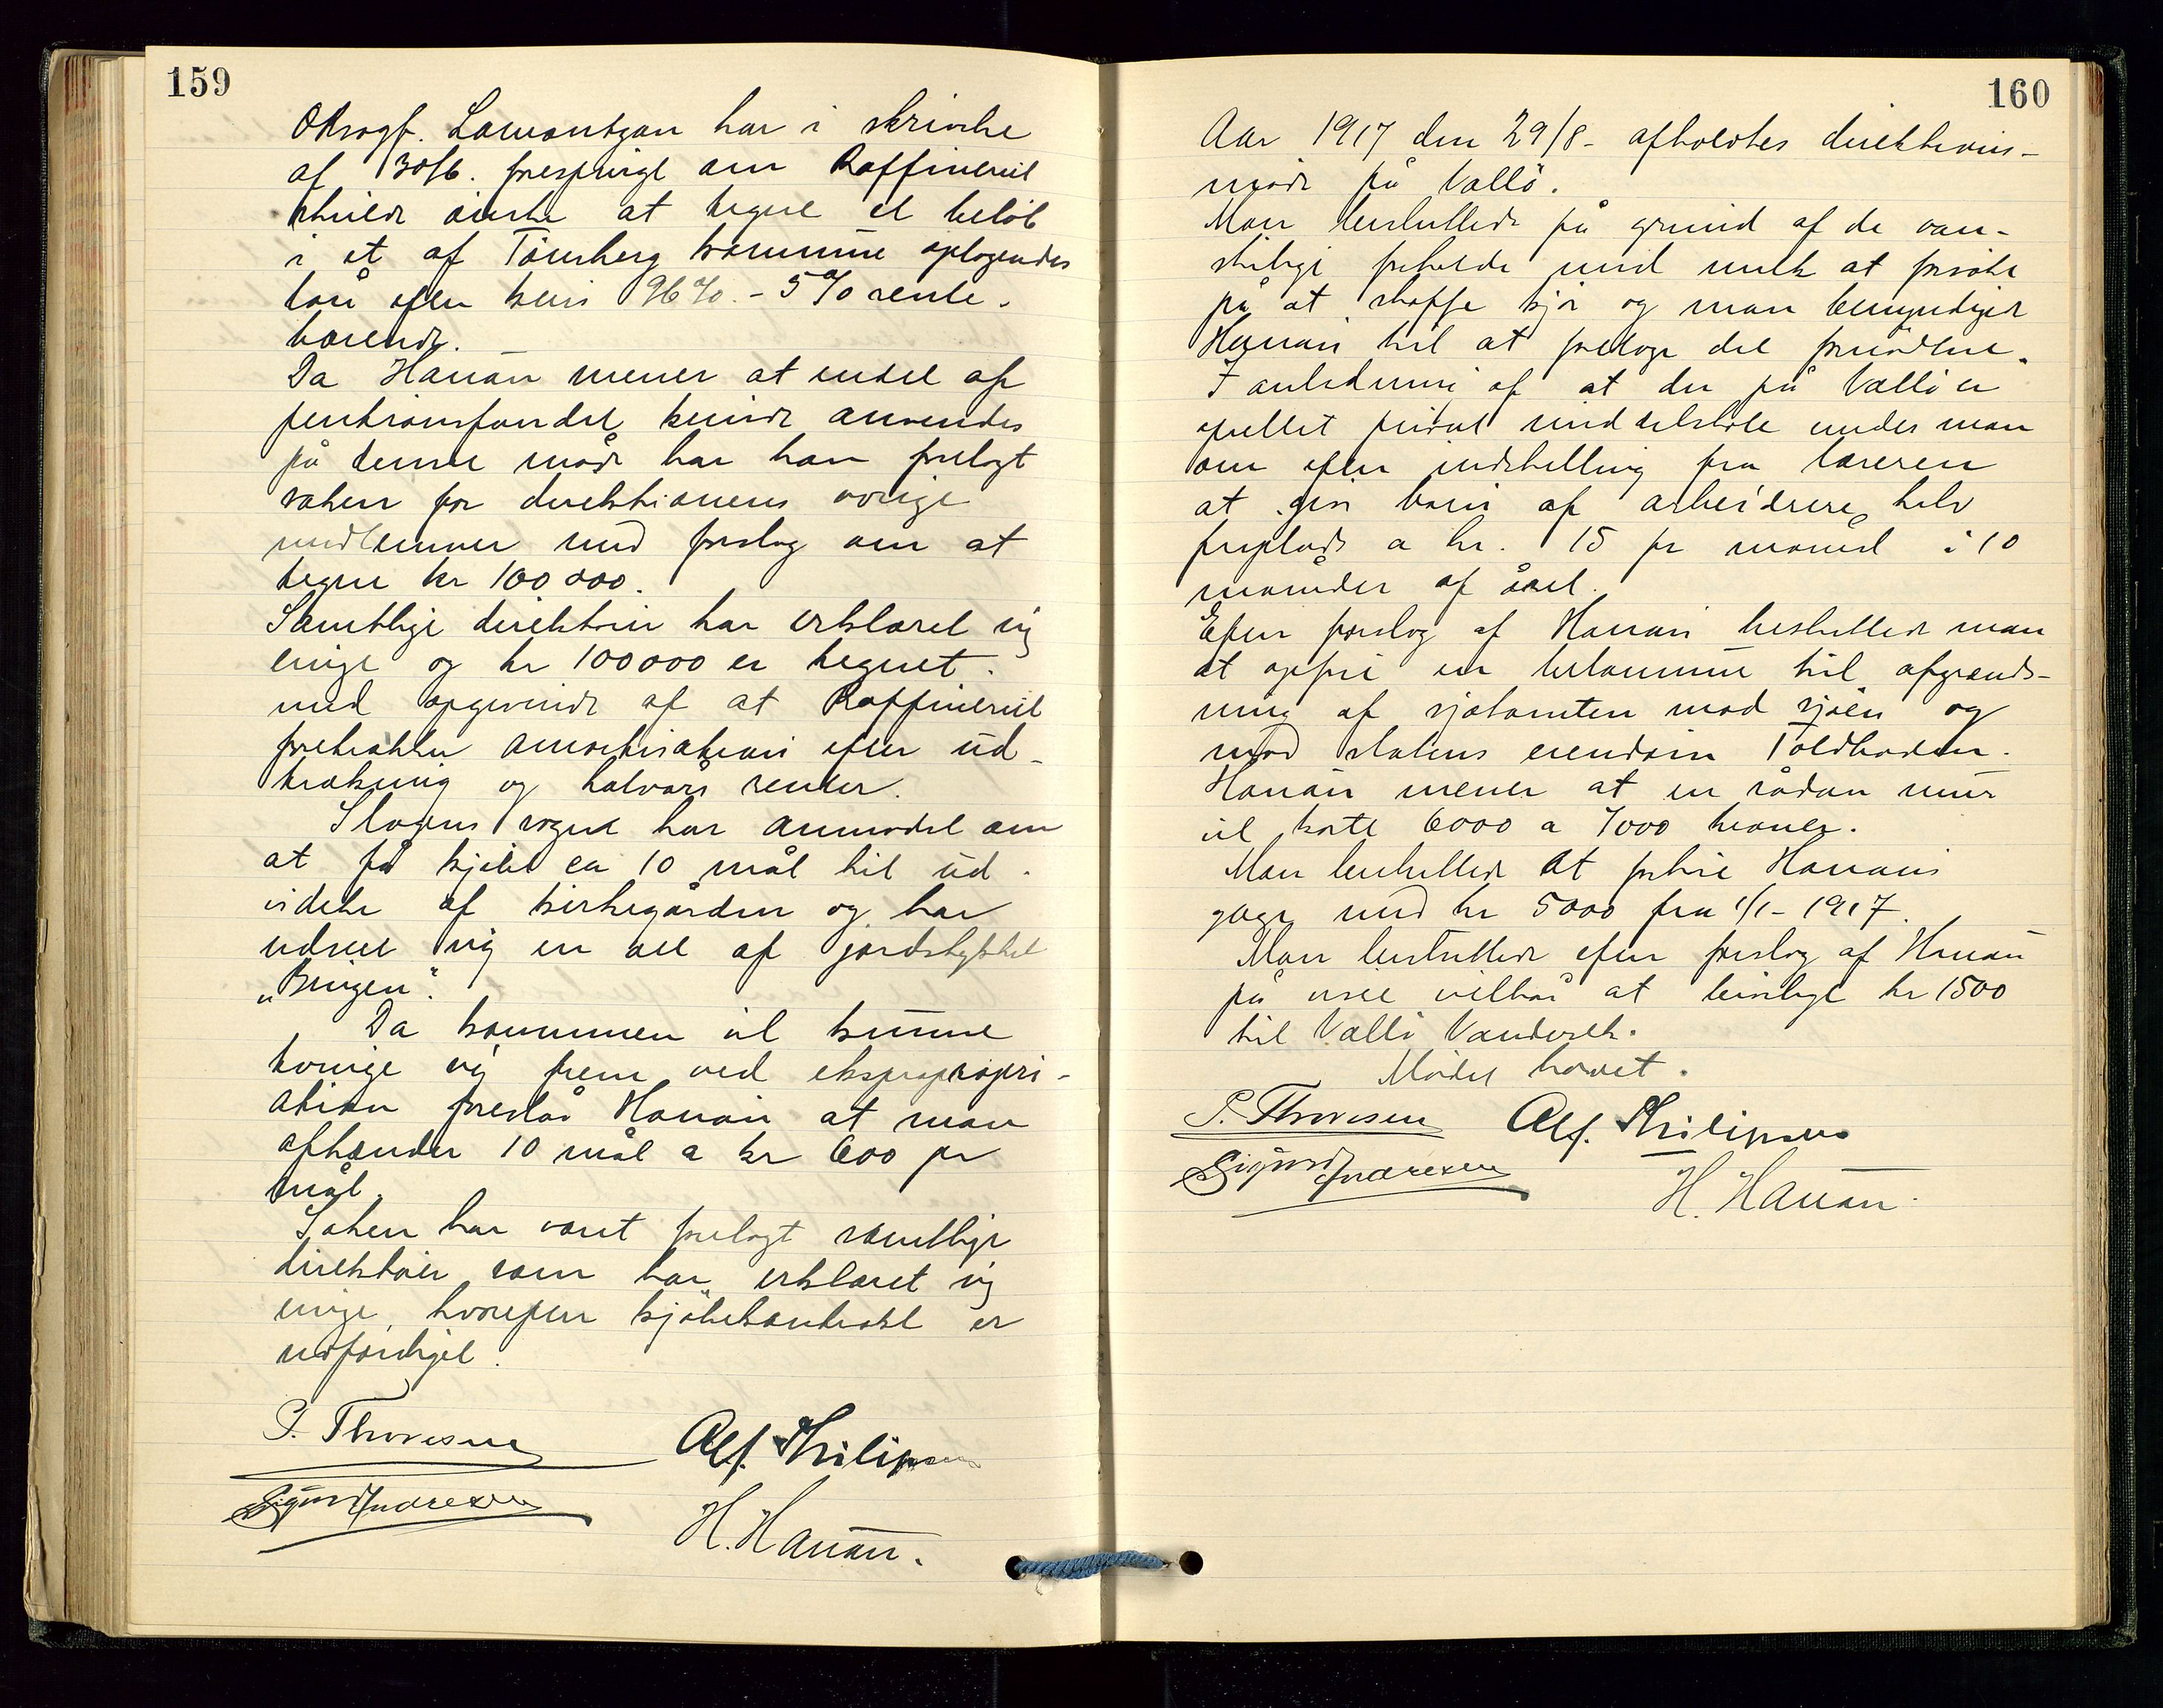 159
ORsagf. Lamontgan har i skrivelse
af 30/6. forespurgt om Raffineriet
skulde ønske at tegne et beløb
i et af Tønsberg kommune optagendes
lån efter kurs 96%. - 5% rente-
bærende.
Da Hauan mener at endel af
pentionsfondet kunde anvendes
på denne måde har han forelagt
saken for direktionens øvrige
medlemmer med forslag om at
tegne kr 100000.
Samtlige direktører har erklæret sig
enige og kr 100000 er tegnet.
med opgivende af at Raffineriet
foretrækker amortisation efter ud-
trækning og halvårs renter.
Slagens sogn har anmodet om
at få kjøbt ca 10 mål til ud-
videlse af kirkegården og har
udseet sig en del af jordstykket
"Bingen".
Da kommunen vil kunne
tvinge sig frem ved ekspropropri-
ation foreslår Hauan at man
afhænder 10 mål a kr 600 pr
mål.
Saken har været forelagt samtlige
direktører som har erklæret sig
enige, hvorefter kjøbekontrakt er
udfærdiget.
S. Thoresen Alf. Philipsen
Sigurd Andresen
H. Hauan.
160
Aar 1917 den 29/8 - afholdtes direktions-
møde på Vallö.
Man besluttede på grund af de van-
skelige forholde med melk at forsøke
på at skaffe kjør og man bemyndiget
Hauan til at foretage det fornødne.
I anledning af at der på Vallö er
oprettet privat middelskole enedes man
om efter indstilling fra læreren
at gi børn af arbeidere halv
friplads a kr. 15 pr måned i 10
måneder af året.
Efter forslag af Hauan besluttede man
at opføre en betonmur til afgrænds-
ning af sjøtomten mod sjøen og
mod statens eiendom Toldboden.
Hauan mener at en sådan mur
vil koste 6000 a 7000 kroner.
Man besluttede at forhøie Hauans
gage med kr 5000 fra 1/1 - 1917.
Man besluttede efter forslag af Hauan
på visse vilkår at bevilge kr 1500
til Vallö Vandverk.
Mødet hævet.
S. Thoresen Alf. Philipsen
Sigurd Andresen
H. Hauan.